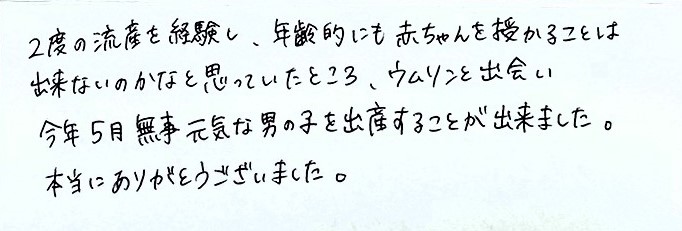 2度の流産を経験し、年齢的にも赤ちゃんを授かることは
出来ないのかなと思っていたところ、ウムリンと出会い
今年5月無事元気な男の子を出産することが出来ました。
本当にありがとうございました。